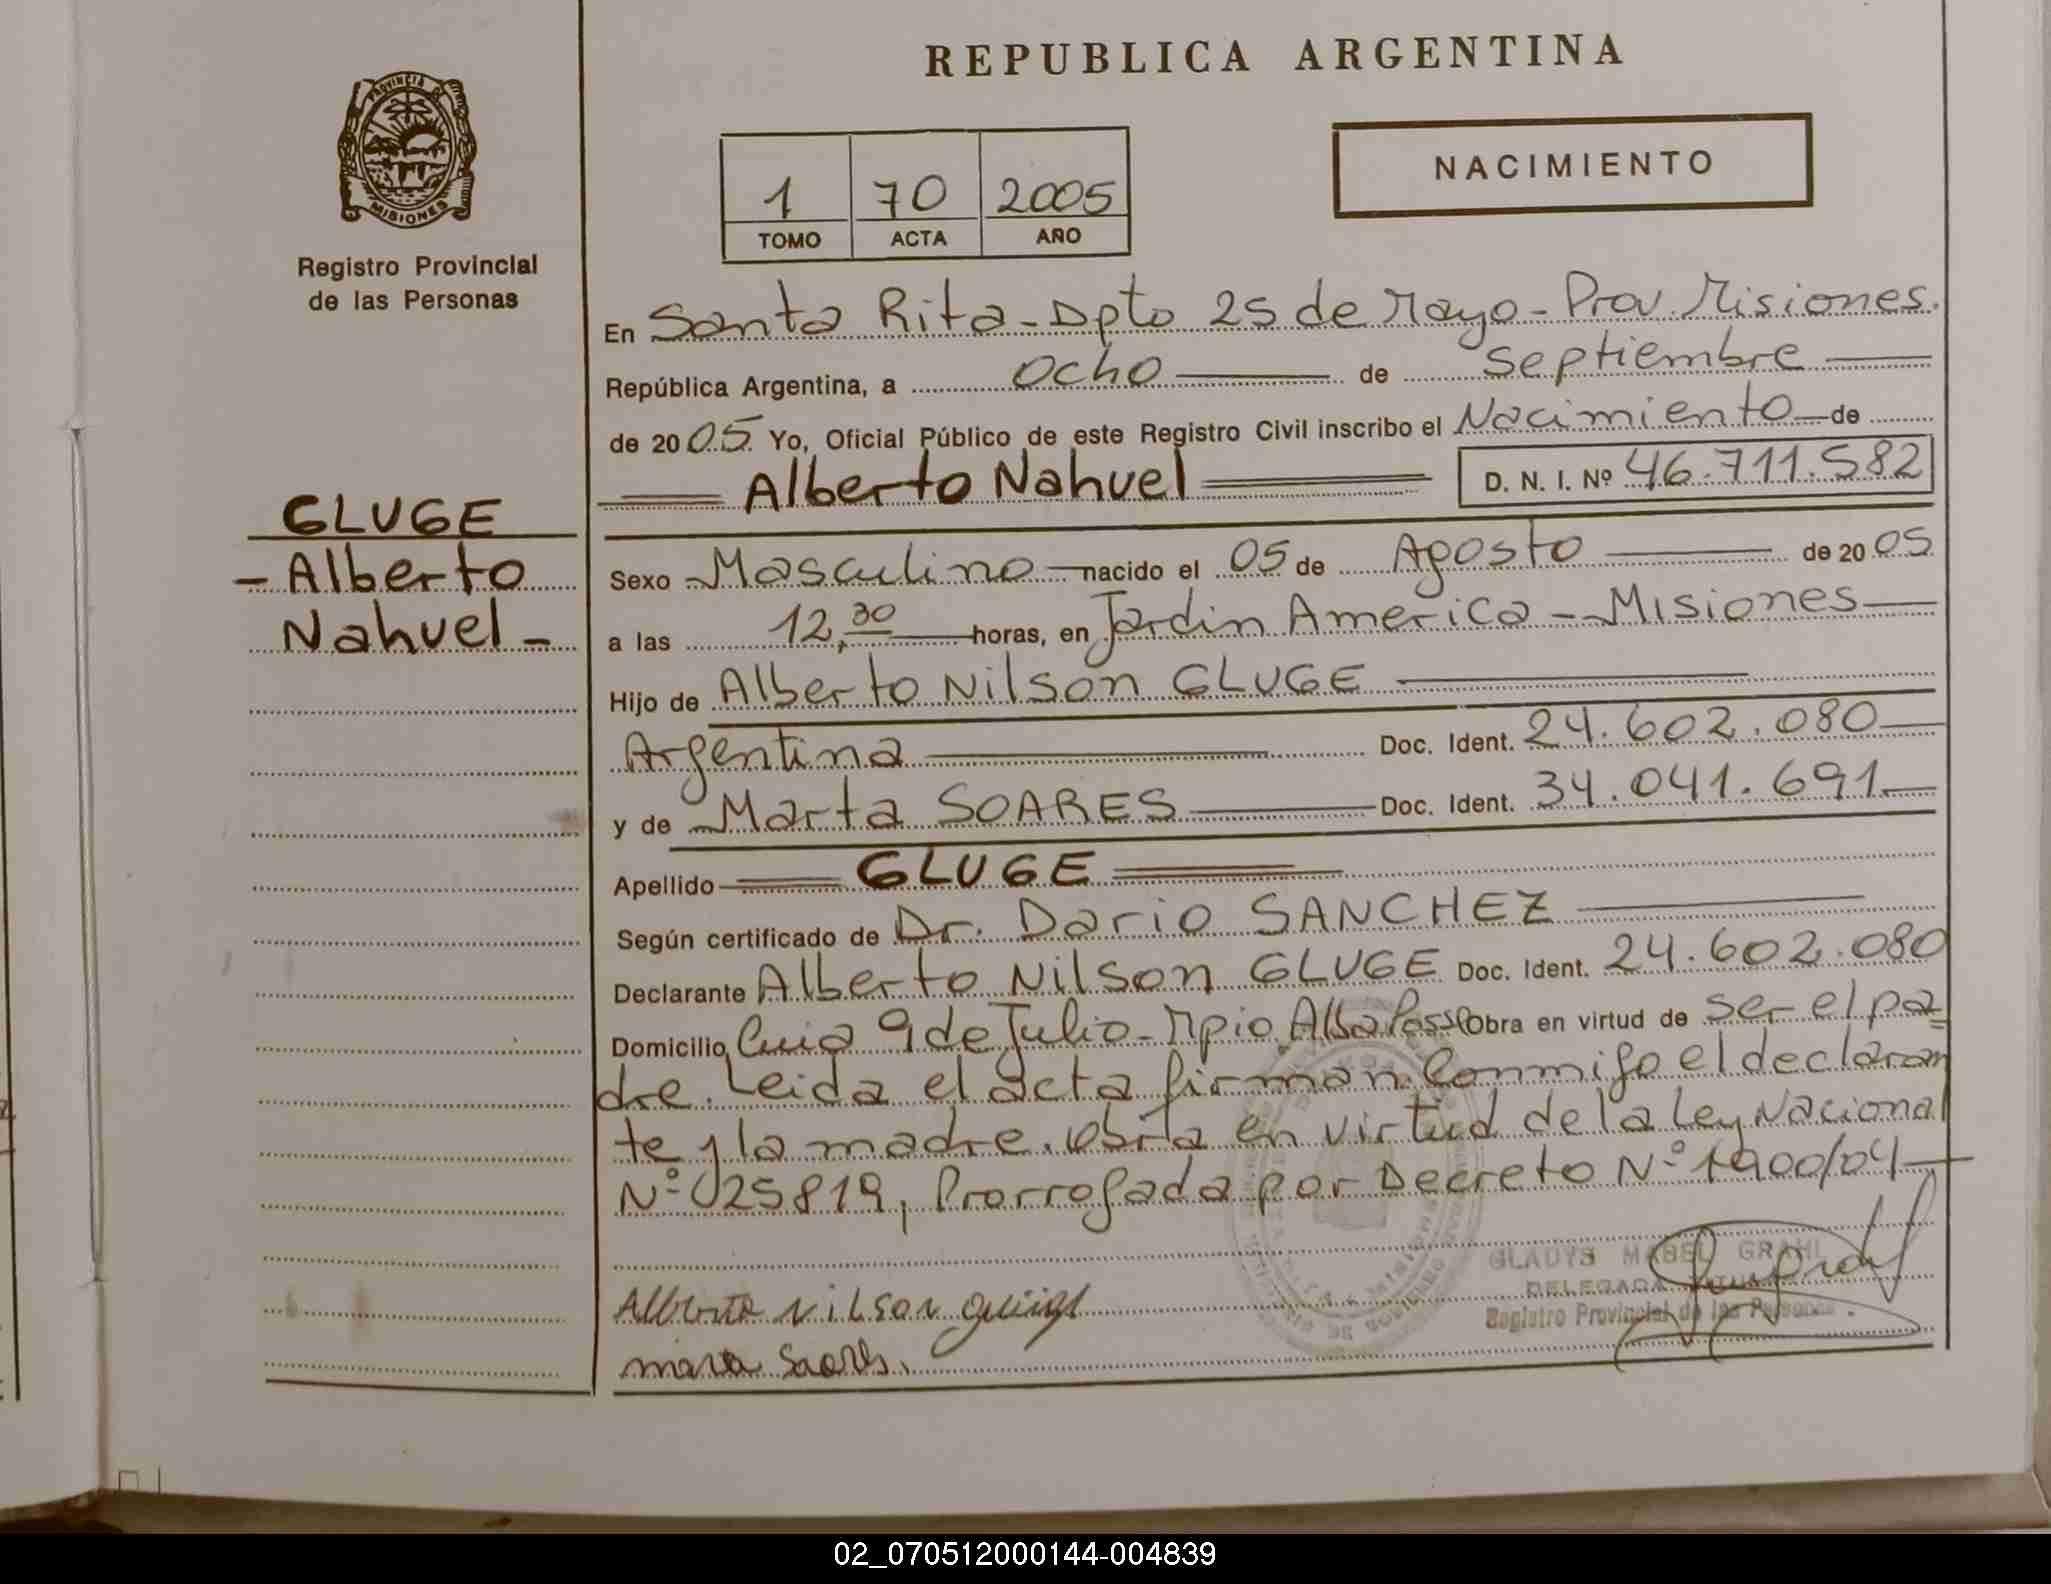 REPUBLICA ARGENTINA
PROVINCIA DE
MISIONES
Registro Provincial
de las Personas
NACIMIENTO
1 70 2005
TOMO ACTA AÑO
En Santa Rita - Dpto 25 de Mayo - Prov. Misiones.
República Argentina, a Ocho de Septiembre
de 2005. Yo, Oficial Público de este Registro Civil inscribo el Nacimiento de
Alberto Nahuel D. N. I. Nº 46.711.582
GLUGE
- Alberto
Nahuel -
Sexo Masculino nacido el 05 de Agosto de 2005
a las 12,30 horas, en Jardin America - Misiones
Hijo de Alberto Nilson GLUGE
Argentina Doc. Ident. 24.602.080
y de Marta SOARES Doc. Ident. 34.041.691
Apellido GLUGE
Según certificado de Dr. Dario SANCHEZ
Declarante Alberto Nilson GLUGE Doc. Ident. 24.602.080
Domicilio 9 de Julio - Mpio. Alba Posse Obra en virtud de ser el pa=
dre. Leida el acta firman conmigo el declaran
te y la madre. Obra en virtud de la Ley Nacional
Nº 025819, Prorrogada por Decreto Nº 1900/04
GLADYS MABEL GRAHL
DELEGADA
Registro Provincial de las Personas
Alberto Nilson
Soares.
02_070512000144-004839